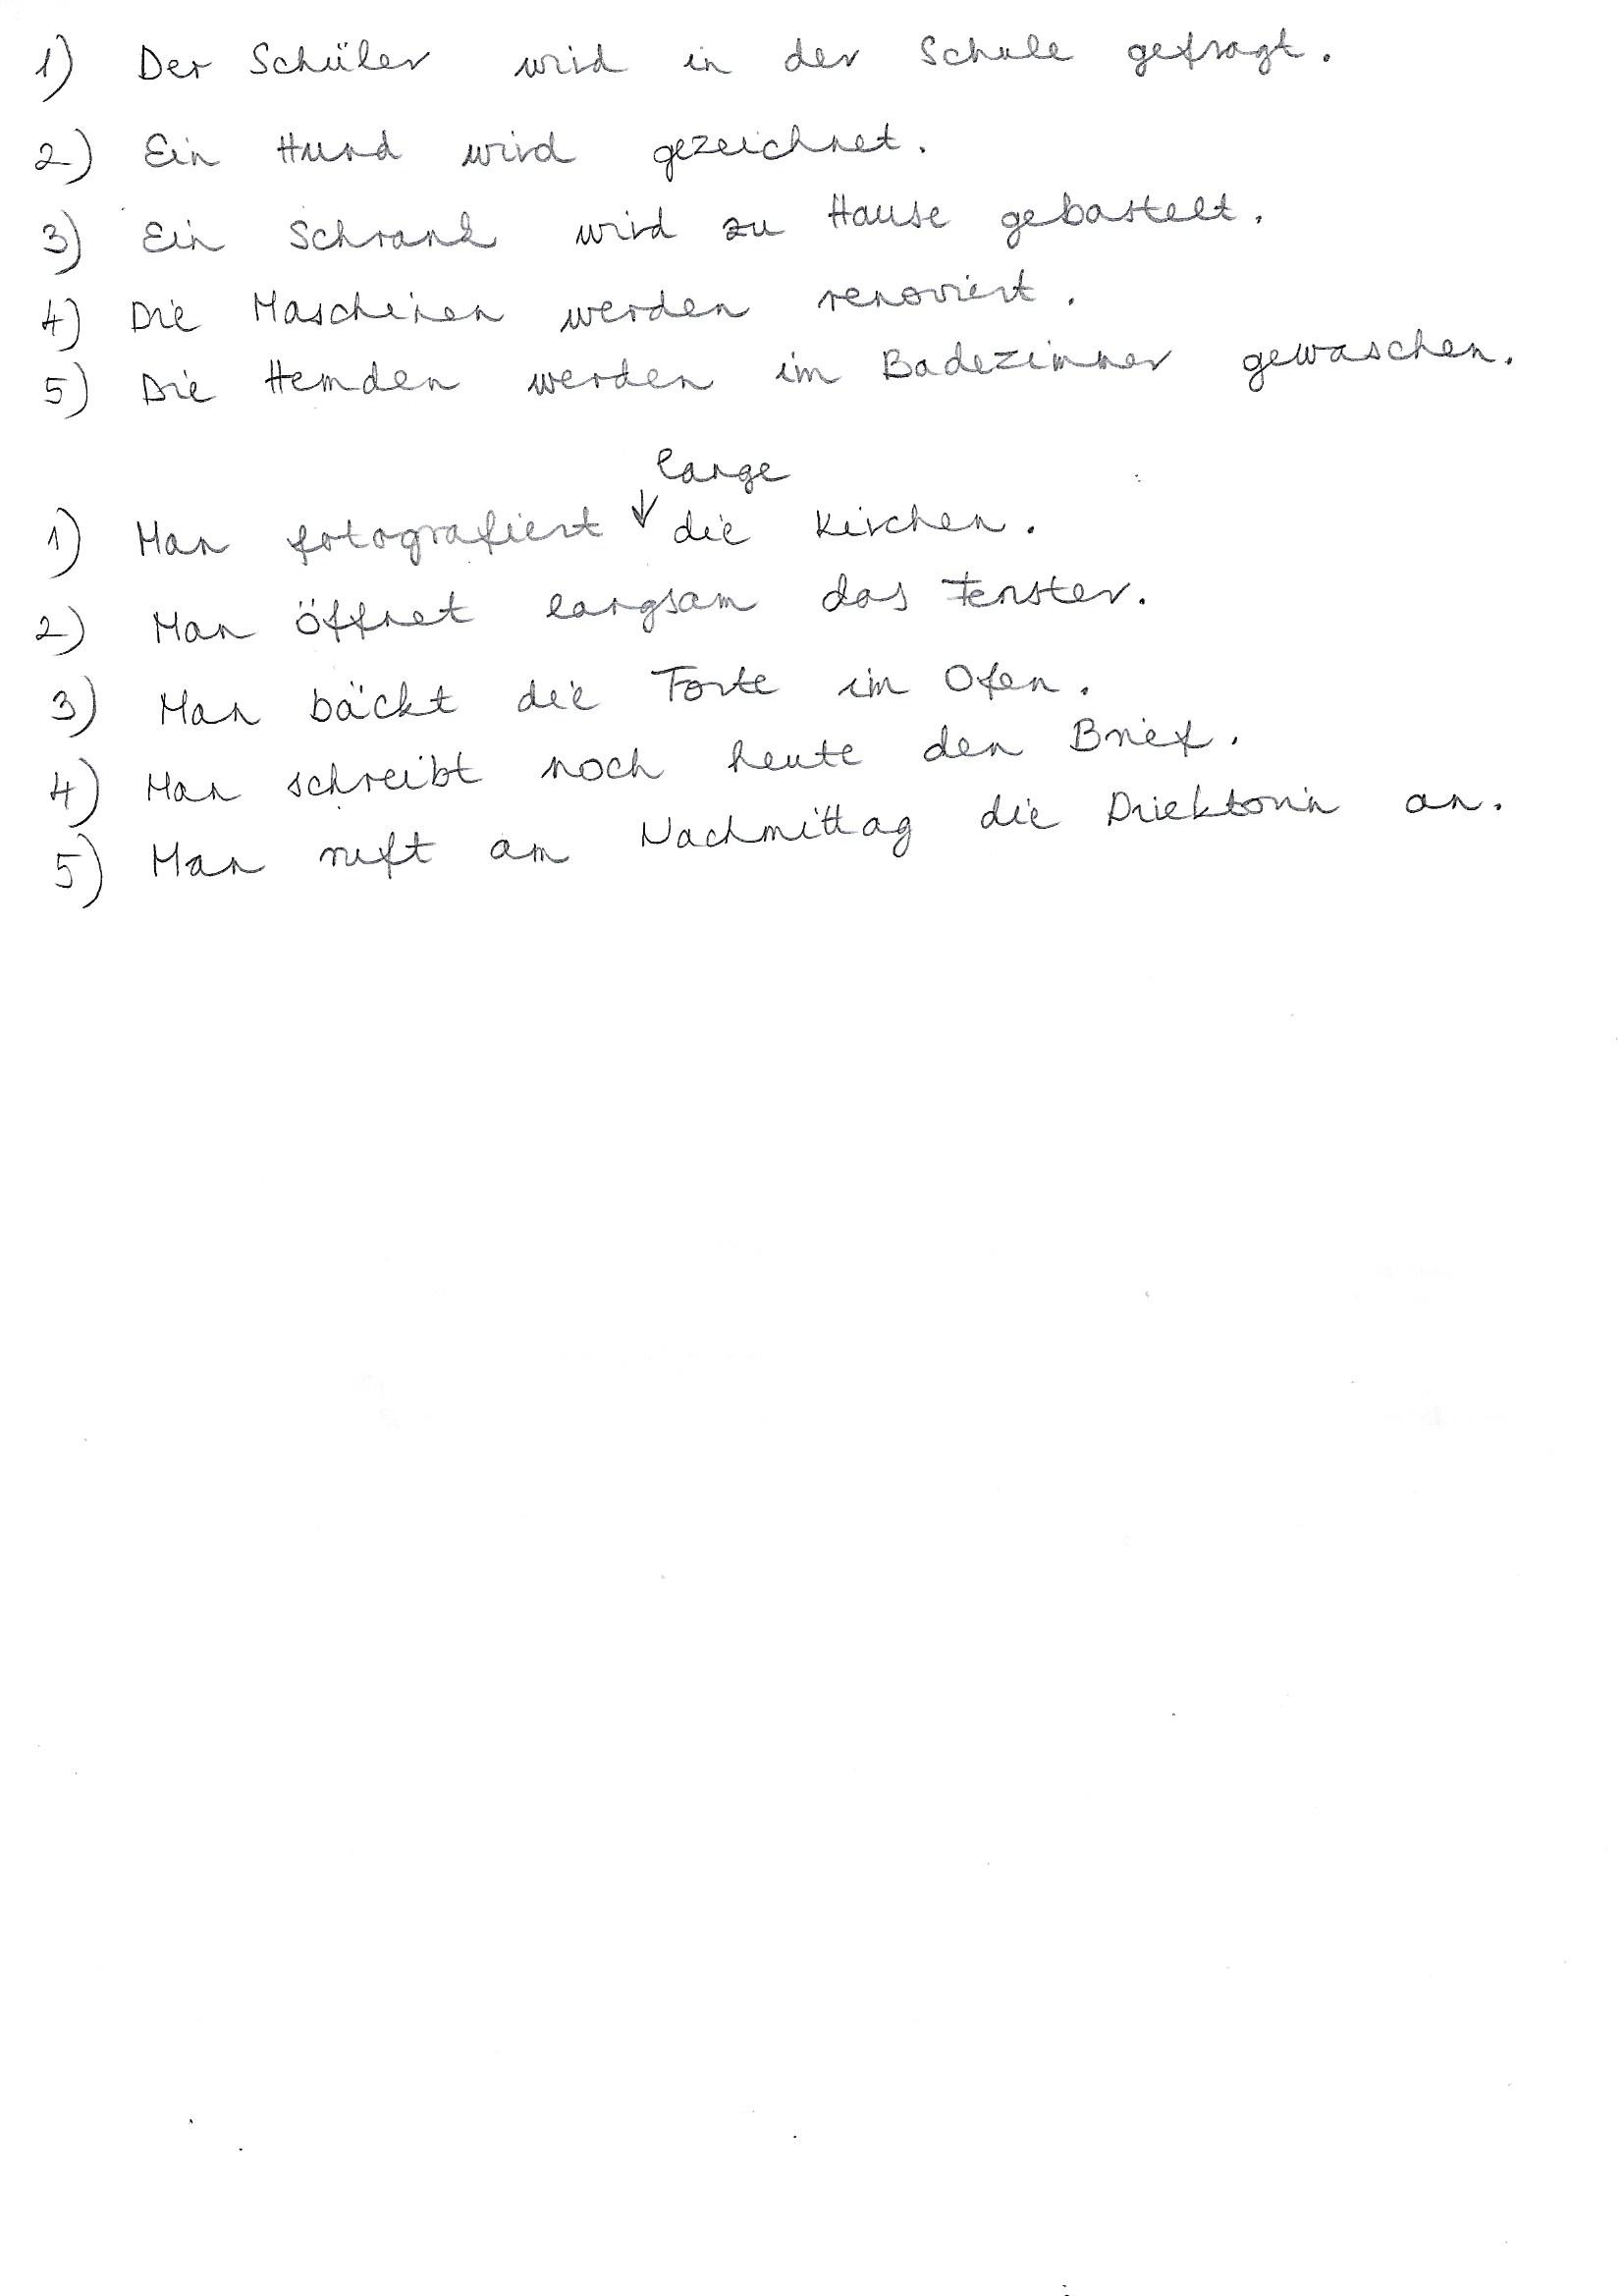 1) Der Schüler wird in der Schule gefragt.
2) Ein Hund wird gezeichnet.
3) Ein Schrank wird zu Hause gebastelt.
4) Die Maschinen werden renoviert.
5) Die Hemden werden im Badezimmer gewaschen.
lange
1) Man fotografiert ↓ die Kirchen.
2) Man öffnet langsam das Fenster.
3) Man bäckt die Torte im Ofen.
4) Man schreibt noch heute den Brief.
5) Man ruft am Nachmittag die Driektorin an.